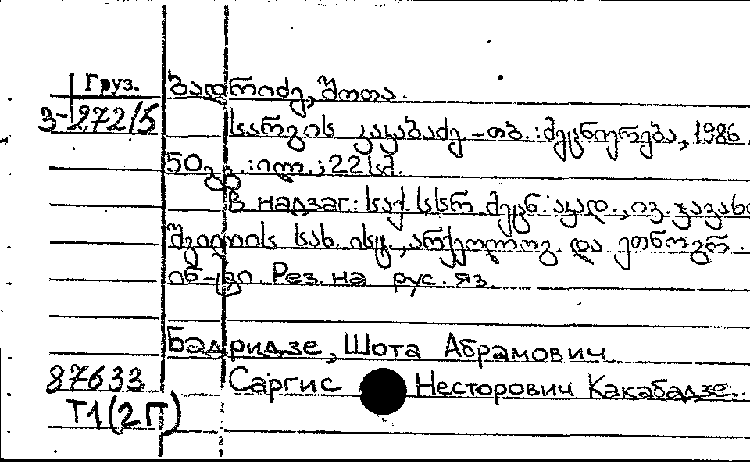 Груз.
ბადრიძე, შოთა.
3-272/5
სარგის კაკაბაძე – თბ. : მეცნიერება, 1986.
50 გვ. : ილ. ; 22 სმ.
В надзаг.: საქ. სსრ მეცნ. აკად., ივ. ჯავახი
შვილის სახ. ისტ., არქეოლოგ. და ეთნოგრ.
ინ-ტი. Рез. на рус. яз.
Бадридзе, Шота Абрамович
87633
Саргис Несторович Какабадзе..
Т1(2Г)